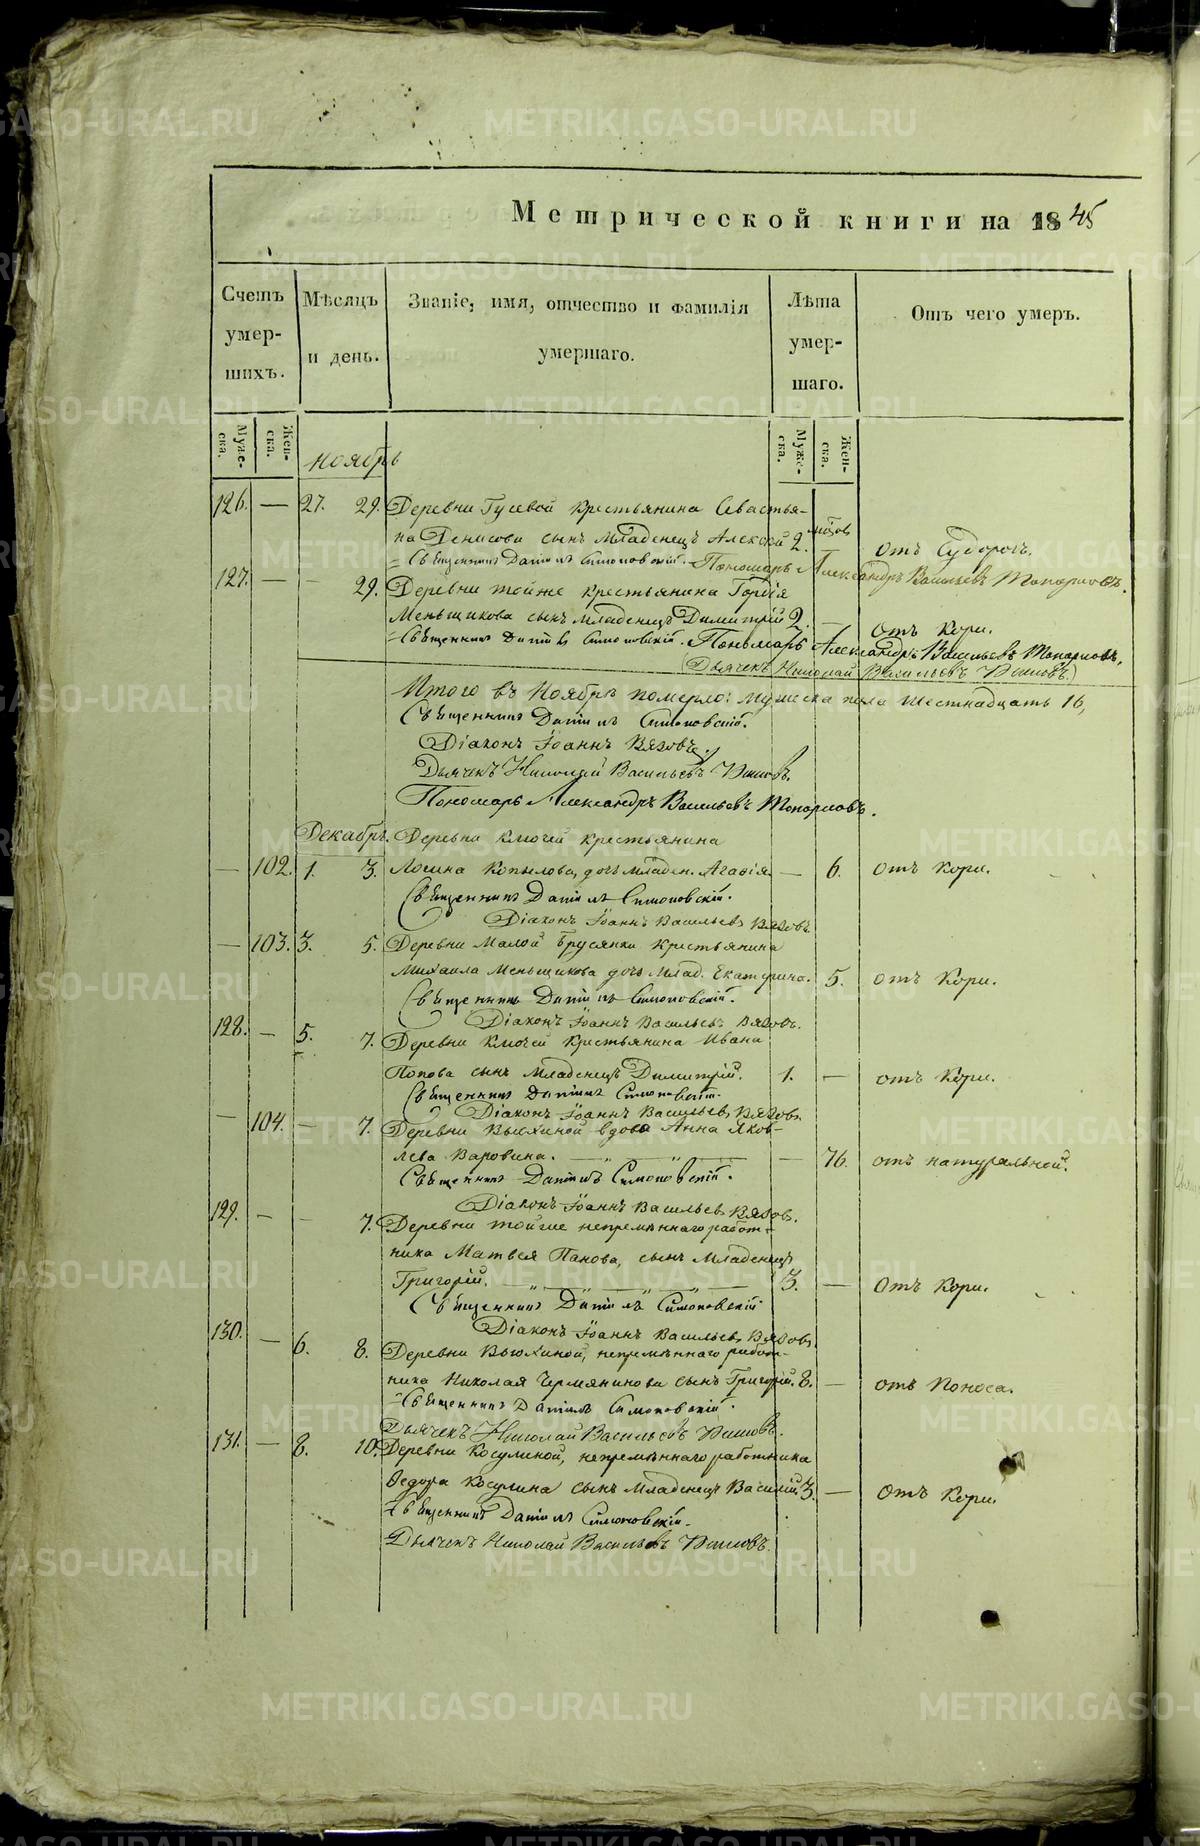 Метрической книги на 1845
Счетъ умершихъ.
Мѣсяцъ и день.
Званіе, имя, отчество и фамилія умершаго.
Лѣта умершаго.
Отъ чего умеръ.
Мужеска. Женска.
Мужеска. Женска.
Ноябрь
126. — 27. 29. Деревни Гусевой крестьянина Севастья-
на Денисова сынъ младенецъ Алексѣй 2. — отъ Судорогъ.
Священникъ Даніилъ Симоновскій. Пономарь Александръ Васильевъ Топорковъ.
127. — — 29. Деревни тойже крестьянина Гордія
Меньщикова сынъ младенецъ Димитрій 2. — отъ Кори.
Священникъ Даніилъ Симоновскій. Пономарь Александръ Васильевъ Топорковъ.
(Дьячекъ Николай Васильевъ)
Итого въ Ноябрѣ померло: мужеска пола шестнадцать 16,
Священникъ Даніилъ Симоновскій.
Діаконъ Іоаннъ Вязовъ.
Дьячекъ Николай Васильевъ
Пономарь Александръ Васильевъ Топорковъ.
Декабрь. Деревни Ключей крестьянина
— 102. 1. 3. Копылова, дочь младен. Агафія. — 6. отъ Кори.
Священникъ Даніилъ Симоновскій.
Діаконъ Іоаннъ Васильевъ Вязовъ.
— 103. 3. 5. Деревни Малой Брусянки крестьянина
Михаила Меньщикова дочь млад. Екатерина. 5. отъ Кори.
Священникъ Даніилъ Симоновскій.
Діаконъ Іоаннъ Васильевъ Вязовъ.
128. — 5. 7. Деревни Ключей крестьянина Ивана
Попова сынъ младенецъ Димитрій. 1. — отъ Кори.
Священникъ Даніилъ Симоновскій.
Діаконъ Іоаннъ Васильевъ Вязовъ.
— 104. — 7. Деревни Вьюхиной вдова Анна Яков-
лева Варовина. — 76. отъ натуральной.
Священникъ Даніилъ Симоновскій.
Діаконъ Іоаннъ Васильевъ Вязовъ.
129. — — 7. Деревни тойже непремѣннаго работ-
ника Матвея Панова, сынъ младенецъ
Григорій. 3. — отъ Кори.
Священникъ Даніилъ Симоновскій
Діаконъ Іоаннъ Васильевъ Вязовъ.
130. — 6. 8. Деревни Вьюхиной, непремѣннаго работ-
ника Николая Чермянинова сынъ Григорій. 8. — отъ Поноса.
Священникъ Даніилъ Симоновскій.
Дьячекъ Николай Васильевъ
131. — 8. 10. Деревни Косулиной, непремѣннаго работника
Ѳедора Косулина сынъ младенецъ Василій 3. — отъ Кори.
Священникъ Даніилъ Симоновскій.
Дьячекъ Николай Васильевъ
METRIKI.GASO-URAL.RU